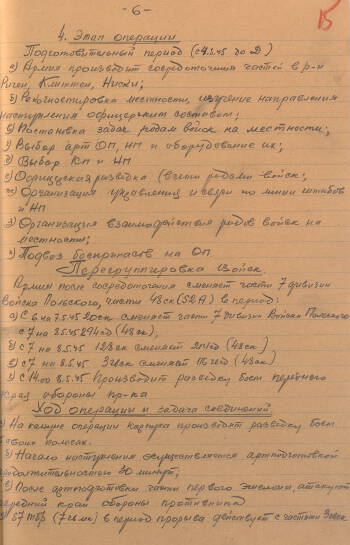 - 6 -
15
4. Этап операции
Подготовительный период (с до Д)
а) Армия производит сосредоточение частей в р-н
Риген, Клиттен, Ниски;
б) Рекогносцировка местности, изучение направления
наступления офицерским составом;
в) Постановка задач родам войск на местности;
г) Выбор арт ОП, НП и оборудование их;
д) Выбор КП и НП
е) Офицерская разведка (всеми родами войск;
ж) Организация управления и связи по линии штабов
и НП
з) Организация взаимодействия родов войск на
местности;
Подвоз боеприпасов на ОП.
Перегруппировка войск.
Армия после сосредоточения сменяет части 7 дивизии
Войска Польского, части 48ск (52А) в период:
а) С 6 на 7.5.45 20ск сменяет части 7 дивизии Войска Польского
с 7 на 8.5.45 294сд (48ск),
б) с 7 на 8.5.45 128ск сменяет 214сд (48ск)
в) с 7 на 8.5.45 3гвск сменяет 116сд (48ск)
г) С на 8.5.45 Производит разведку боем переднего
края обороны пр-ка
Ход операции и задача соединений.
а) На кануне операции корпуса производят разведку боем
в своих полосах.
б) Начало наступления осуществляется артподготовкой
продолжительностью 30 минут;
в) После артподготовки части первого эшелона, атакуют
передний край обороны противника
г) 57тбр (7гв мк) в период прорыва действует с частями 3гвск